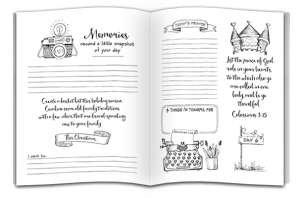 Memories
record a little snapshot
of your day
Create a bucket list this holiday season.
Combine some old family traditions
with a few ideas that are brand-spanking
new to your family.
This Christmas
I want to:
TODAY'S PRAYER
3 THINGS I'M THANKFUL FOR
Let the peace of God
rule in your hearts,
to the which also ye
are called in one
body; and be ye
thankful.
Colossians 3:15
DAY 6